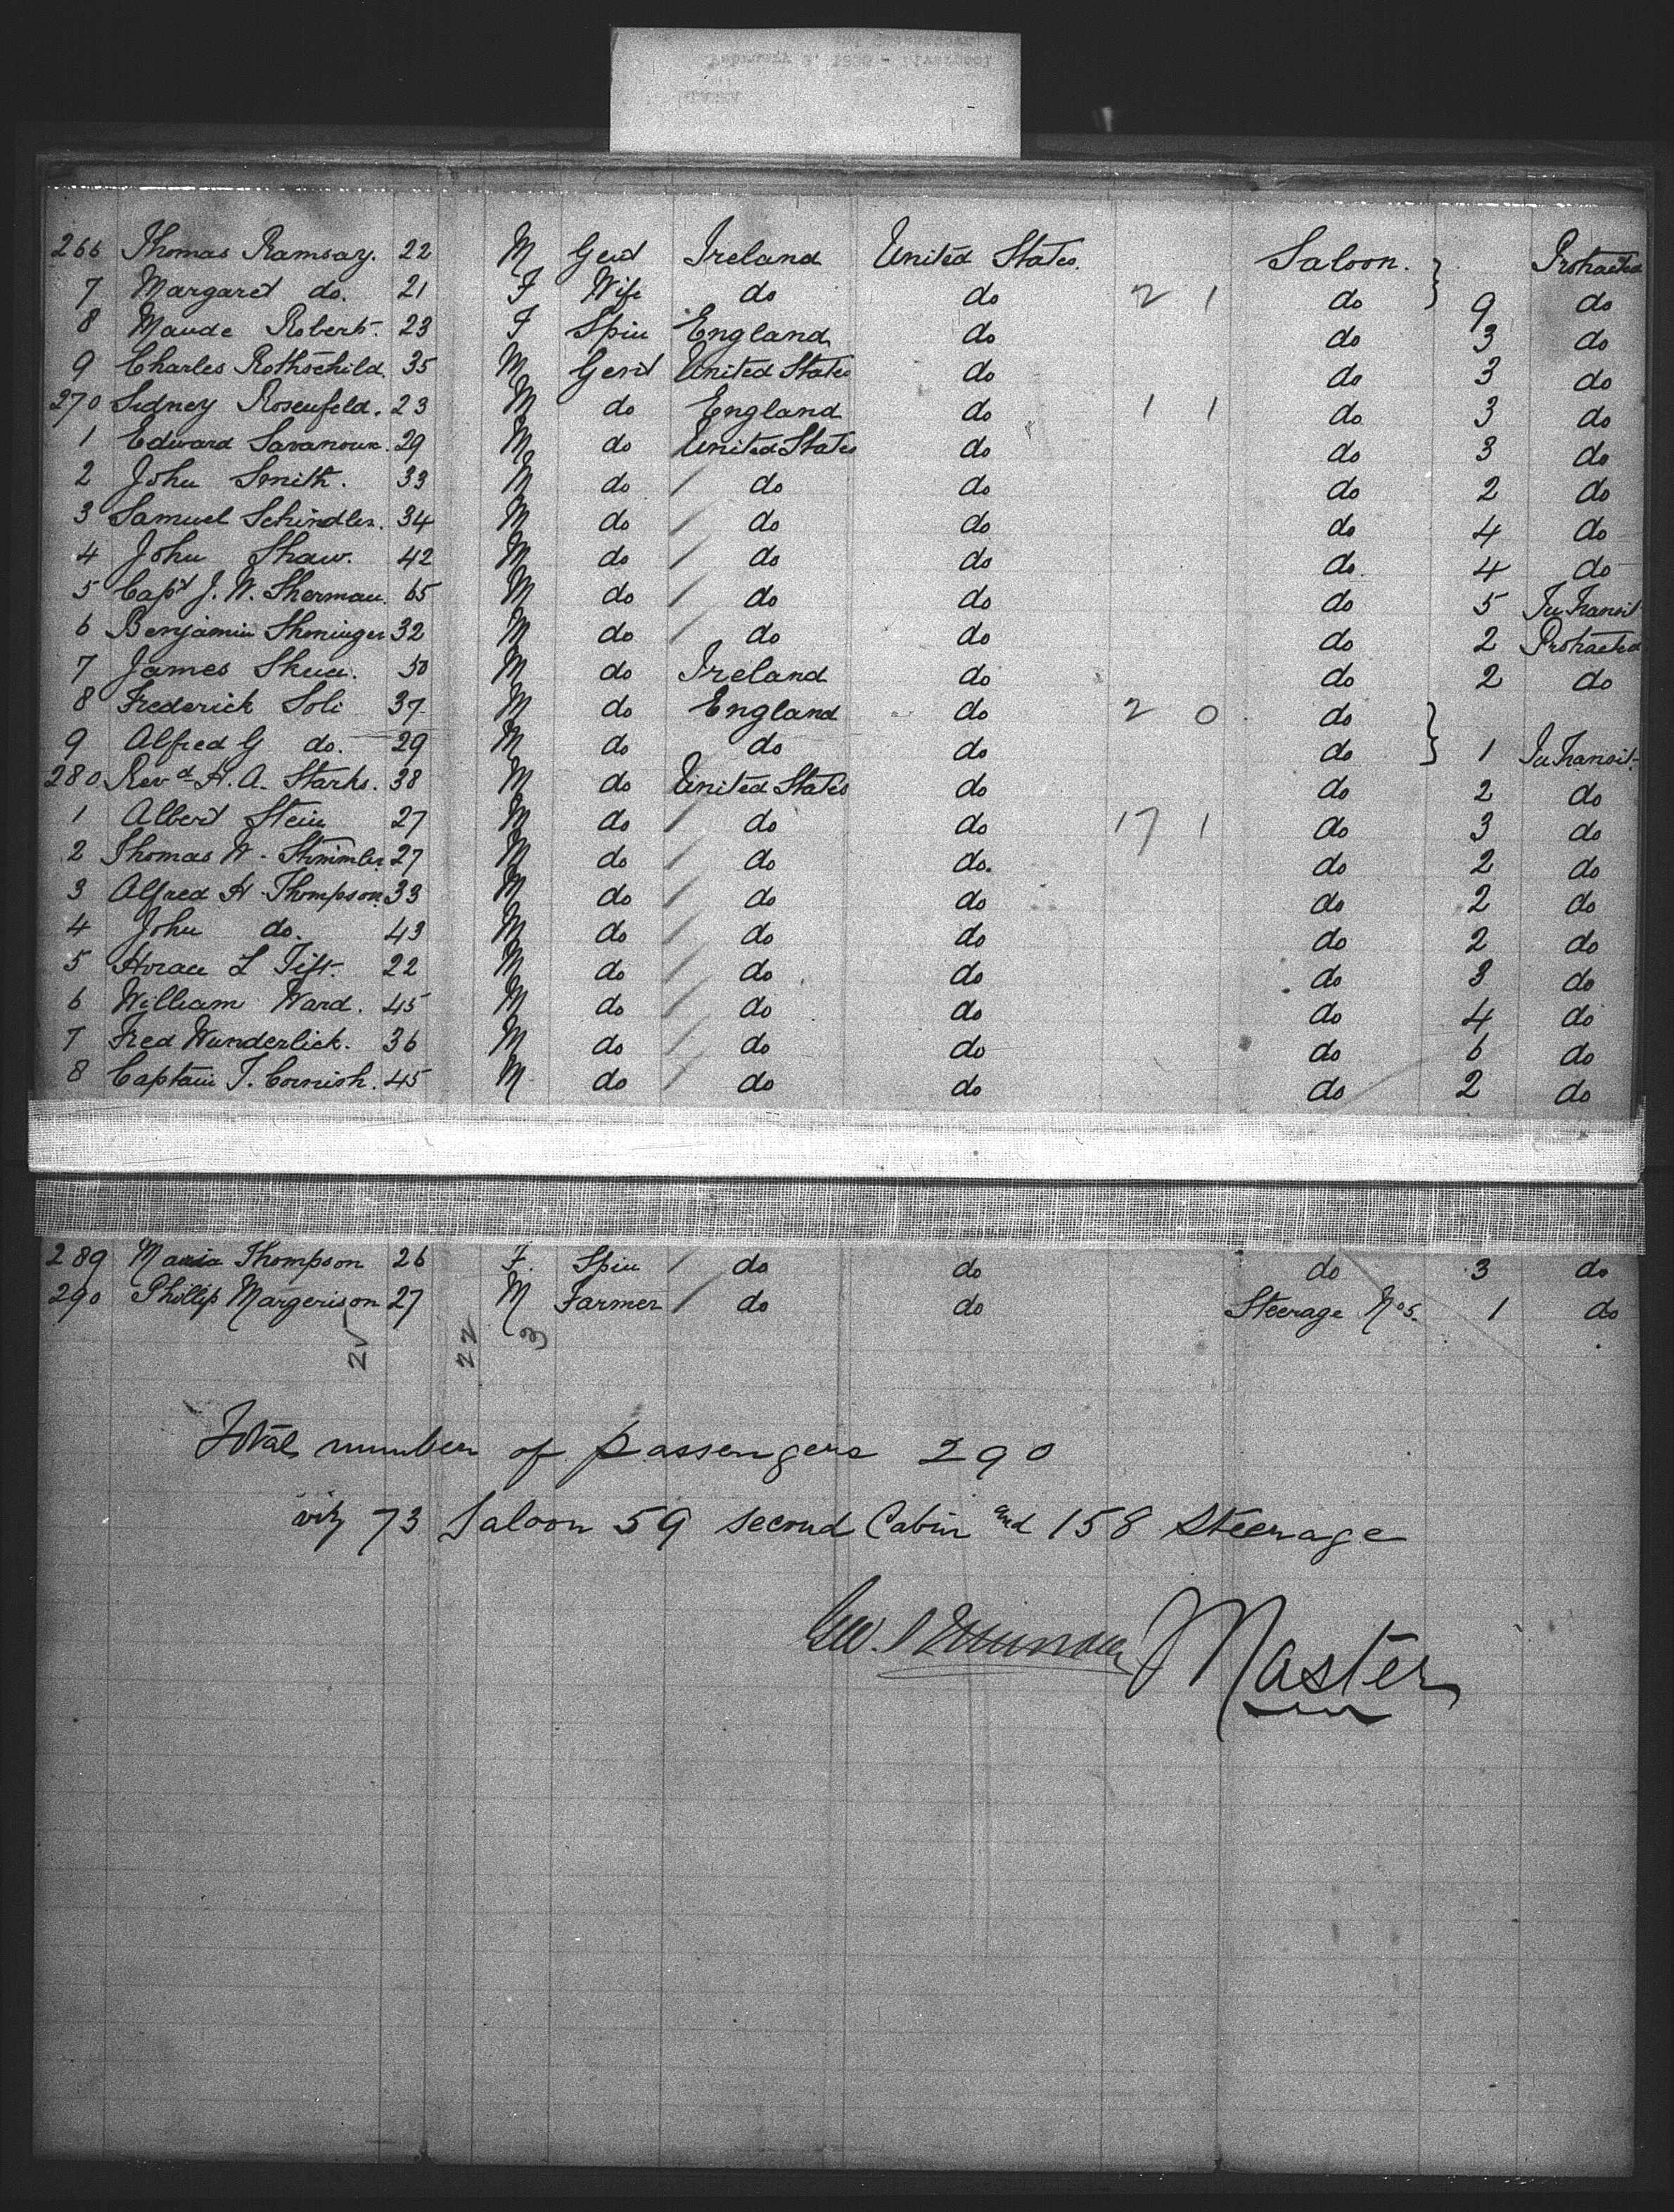 266 Thomas Ramsay. 22 M Gent Ireland United States. Saloon. Protracted
7 Margaret do. 21 F Wife do do 2 1 do 9 do
8 Maude Robert. 23 F Spin England do do 3 do
9 Charles Rothschild. 35 M Gent United States do do 3 do
270 Sidney Rosenfeld. 23 M do England do 1 1 do 3 do
1 Edward 29 M do United States do do 3 do
2 John Smith. 33 M do do do do 2 do
3 Samuel Schindler. 34 M do do do do 4 do
4 John Shaw. 42 M do do do do. 4 do
5 Capt J. W. Sherman. 65 M do do do do 5 In Transit
6 Benjamin Shoninger 32 M do do do do 2 Protracted
7 James 50 M do Ireland do do 2 do
8 Frederick Soli 37 M do England do 2 0 do
9 Alfred G do. 29 M do do do do 1 In Transit.
280 Revd H. A. Starks. 38 M do United States do do 2 do
1 Albert Stein 27 M do do do 17 1 do 3 do
2 Thomas W. 27 M do do do. do 2 do
3 Alfred H Thompson. 33 M do do do do 2 do
4 John do. 43 M do do do do 2 do
5 Horace L Tift. 22 M do do do do 3 do
6 William Ward. 45 M do do do do 4 do
7 Fred Wunderlich. 36 M do do do do 6 do
8 Captain T. Cornish. 45 M do do do do 2 do
289 Maria Thompson 26 F. Spin do do do 3 do
290 Phillip Margerison 27 M Farmer do do Steerage No 5. 1 do
22 3
Total number of passengers 290
viz 73 Saloon 59 second Cabin and 158 Steerage
Master